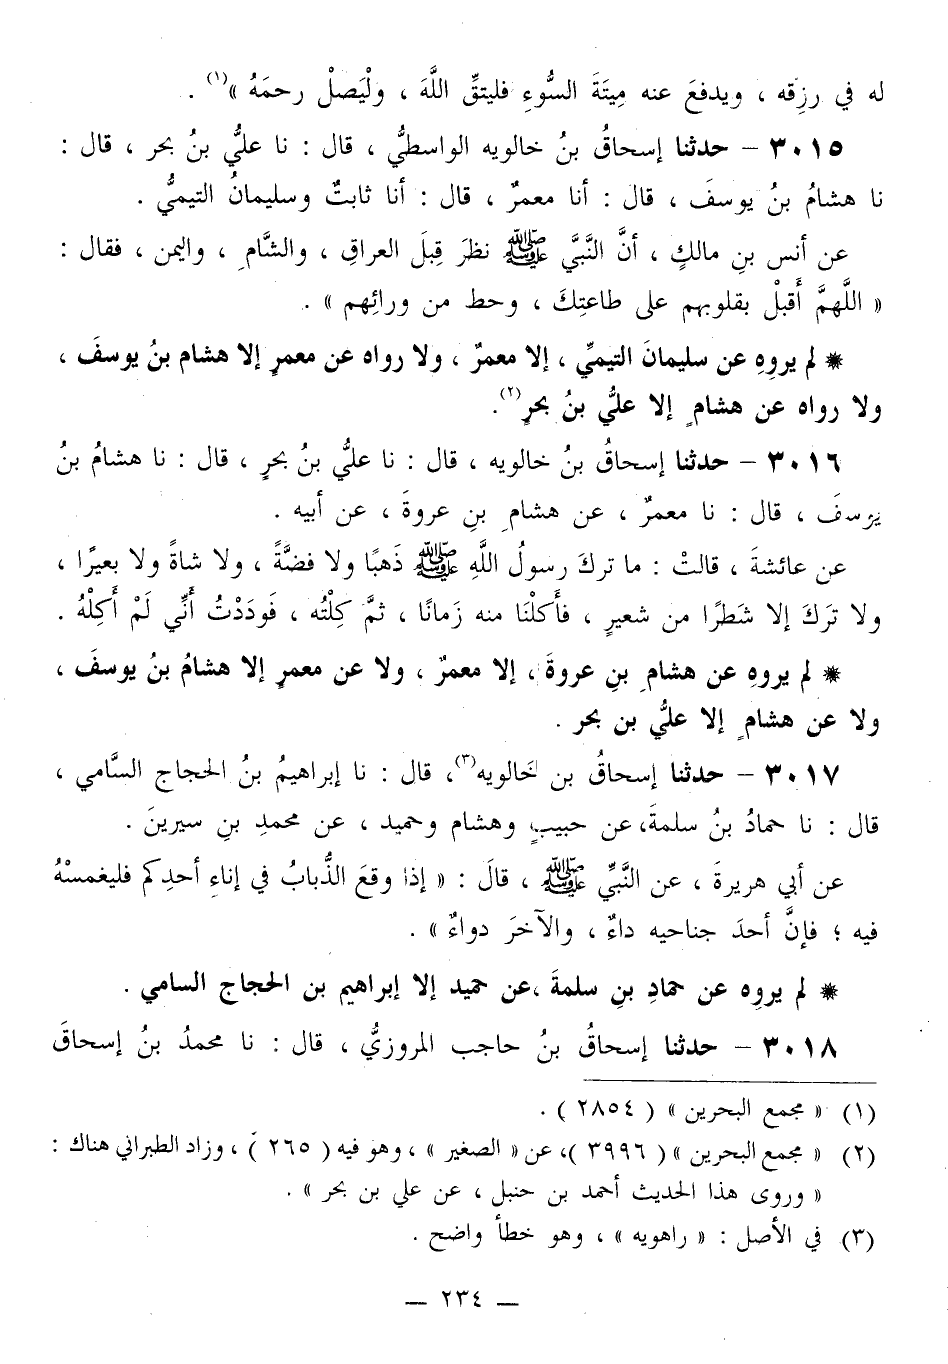 له في رزقه ، ويدفعَ عنه مِيتَةَ السُّوءِ فليتقِّ اللَّهَ ، ولْيَصلْ رحمَهُ »(١) .
٣٠١٥ – حدثنا إسحاقُ بنُ خالويه الواسطيُّ ، قال : نا عليُّ بنُ بحر ، قال :
نا هشامُ بنُ يوسفَ ، قال : أنا معمرٌ ، قال : أنا ثابتٌ وسليمانُ التيميُّ .
عن أنس بنِ مالكٍ ، أنَّ النَّبيَّ ﷺ نظرَ قِبلَ العراقِ ، والشَّامِ ، واليمن ، فقال :
« اللَّهمَّ أَقبلْ بقلوبهم على طاعتِكَ ، وحط من ورائِهم » .
* لم يروِهِ عن سليمانَ التيميِّ ، إلا معمرٌ ، ولا رواه عن معمرٍ إلا هشام بنُ يوسفَ ،
ولا رواه عن هشامٍ إلا عليُّ بنُ بحرٍ(٢).
٣٠١٦ – حدثنا إسحاقُ بنُ خالويه ، قال : نا عليُّ بنُ بحرٍ ، قال : نا هشامُ بنُ
يوسفَ ، قال : نا معمرٌ ، عن هشامِ بنِ عروةَ ، عن أبيه .
عن عائشةَ ، قالتْ : ما تركَ رسولُ اللَّهِ ﷺ ذَهبًا ولا فضَّةً ، ولا شاةً ولا بعيرًا ،
ولا تركَ إلا شَطرًا من شعيرٍ ، فأَكلْنَا منه زَمانًا ، ثمَّ كِلْتُه ، فَودَدْتُ أَنِّي لَمْ أَكِلْهُ .
* لم يروهِ عن هشامِ بنِ عروةَ ، إلا معمرٌ ، ولا عن معمرٍ إلا هشامُ بنُ يوسفَ ،
ولا عن هشامٍ إلا عليُّ بن بحر .
٣٠١٧ – حدثنا إسحاقُ بن خالويه(٣)، قال : نا إبراهيمُ بنُ الحجاج السَّامي ،
قال : نا حمادُ بنُ سلمةَ، عن حبيبٍ وهشام وحميد ، عن محمدِ بنِ سيرينَ .
عن أبي هريرةَ ، عن النَّبيِّ ﷺ ، قالَ : « إذا وقعَ الذُّبابُ في إناءِ أحدِكم فليغمسْهُ
فيه ؛ فإنَّ أحدَ جناحيه داءٌ ، والآخرَ دواءٌ » .
* لم يروه عن حمادِ بنِ سلمةَ ،عن حميد إلا إبراهيم بن الحجاج السامي .
٣٠١٨ – حدثنا إسحاقُ بنُ حاجب المروزيُّ ، قال : نا محمدُ بنُ إسحاقَ
(١) « مجمع البحرين » ( ٢٨٥٤ ) .
(٢) « مجمع البحرين » ( ٣٩٩٦ )، عن « الصغير » ، وهو فيه ( ٢٦٥ ) ، وزاد الطبراني هناك :
« وروى هذا الحديث أحمد بن حنبل ، عن علي بن بحر » .
(٣) في الأصل : « راهويه » ، وهو خطأ واضح .
— ٢٣٤ —